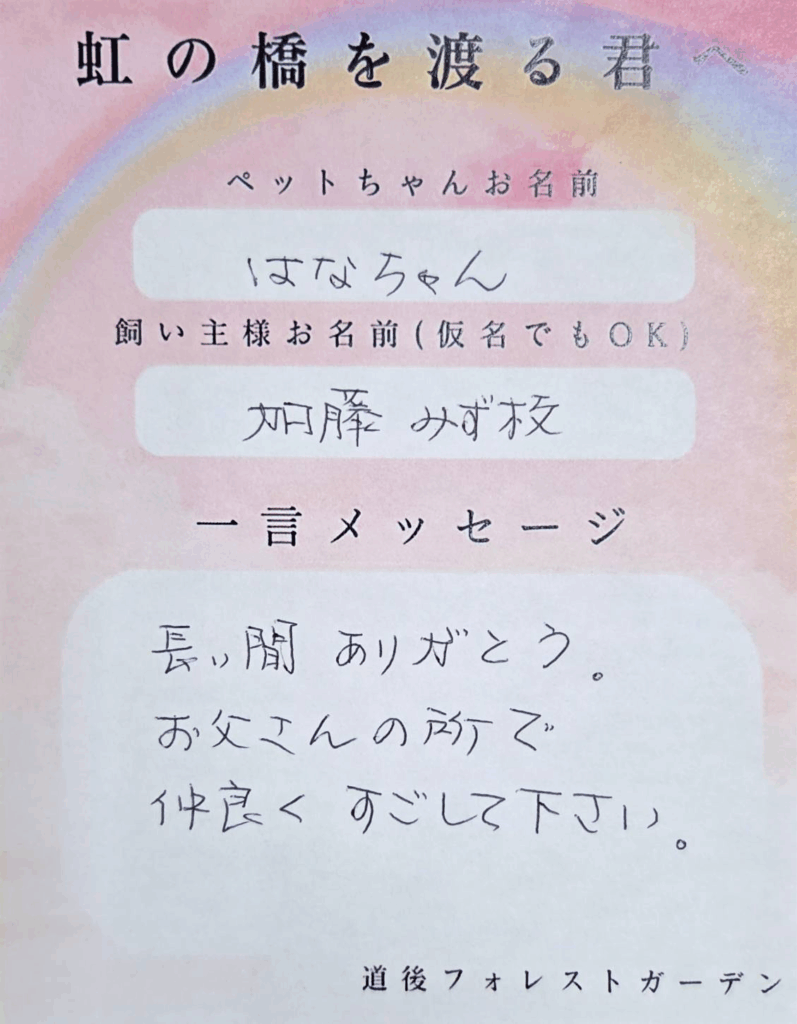 虹の橋を渡る君へ
ペットちゃんお名前
はなちゃん
飼い主様お名前(仮名でもOK)
加藤 みず枝
一言メッセージ
長い間 ありがとう。
お父さんの所で
仲良く すごして下さい。
道後フォレストガーデン